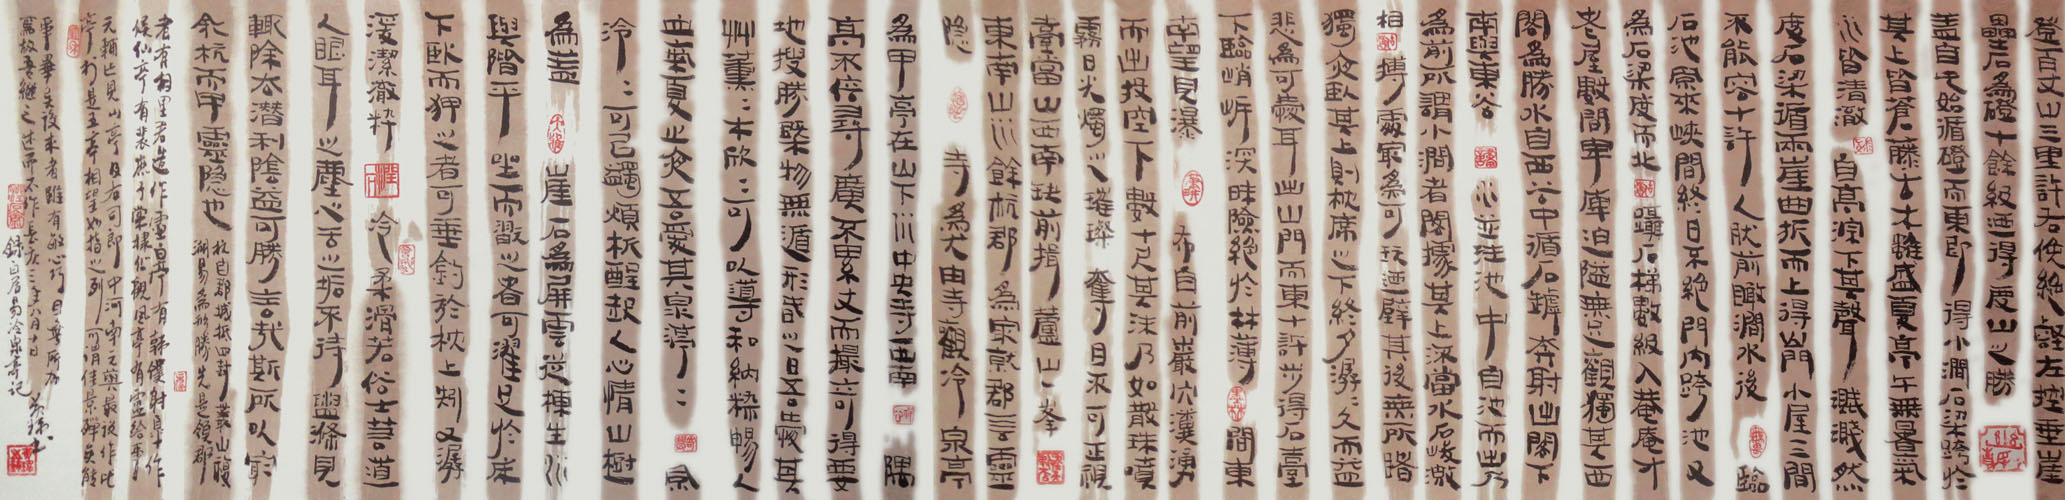 登百丈山三里許右俯絕壑左控垂崖
壘石為磴十餘級迺得度山之勝
蓋自此始循磴而東即得小澗石梁跨於
其上皆蒼藤古木雖盛夏亭午無暑氣
水皆清澈自高淙下其聲濺濺然
度石梁循兩崖曲折而上得山門小屋三間
不能容十許人然前瞰澗水後臨
石池風來峽間終日不絕門内跨池又
為石梁度而北躡石梯數級入菴菴才
老屋數間卑庳迫隘無足觀獨其西
閣為勝水自西谷中循石罅奔射出閣下
南與東谷水並注池中自池而出乃
為前所謂小澗者閣據其上深當水石峻激
相搏處最為可玩迺壁其後無所睹
獨夜臥其上則枕席之下終夕潺潺久而益
悲為可愛耳出山門而東十許步得石臺
下臨峭岸深昧險絕於林薄間東
南望見瀑布自前巖穴瀵湧
而出投空下數十尺其沫乃如散珠噴
霧日光燭之璀璨奪目不可正視
臺當山西南缺前揖蘆山一峯
東南山水餘杭郡為最就郡言靈
隱寺為尤由寺觀冷泉亭
為甲亭在山下水中央寺西南隅
高不倍尋廣不累丈而撮奇得要
地搜勝概物無遁形春之日吾愛其
艸薰〻木欣〻可以導和納粹暢人
血氣夏之夜吾愛其泉渟〻風
泠〻可以蠲煩析酲起人心情山樹
為蓋崖石為屏雲從棟生水
與階平坐而翫之者可濯足於床
下臥而狎之者可垂釣於枕上矧又潺
湲潔澈粹冷柔滑若俗士若道
人眼耳之塵心舌之垢不待盥滌見
輒除去潛利陰益可勝言哉斯所以最
余杭而甲靈隱也
杭自郡城抵四封叢山複
湖易為形勝先是領郡
者有相里君造作虛白亭有韓僕射皋作
候仙亭有裴庶子棠棣作觀風亭有盧給事
元輔作見山亭及右司郎中河南元藇最後作此
亭於是五亭相望如指之列可謂佳景殫矣能
事畢矣後來者雖有敏心巧目無所加
焉故吾繼之述而不作長慶三年八月十三日
錄白居易冷泉亭記